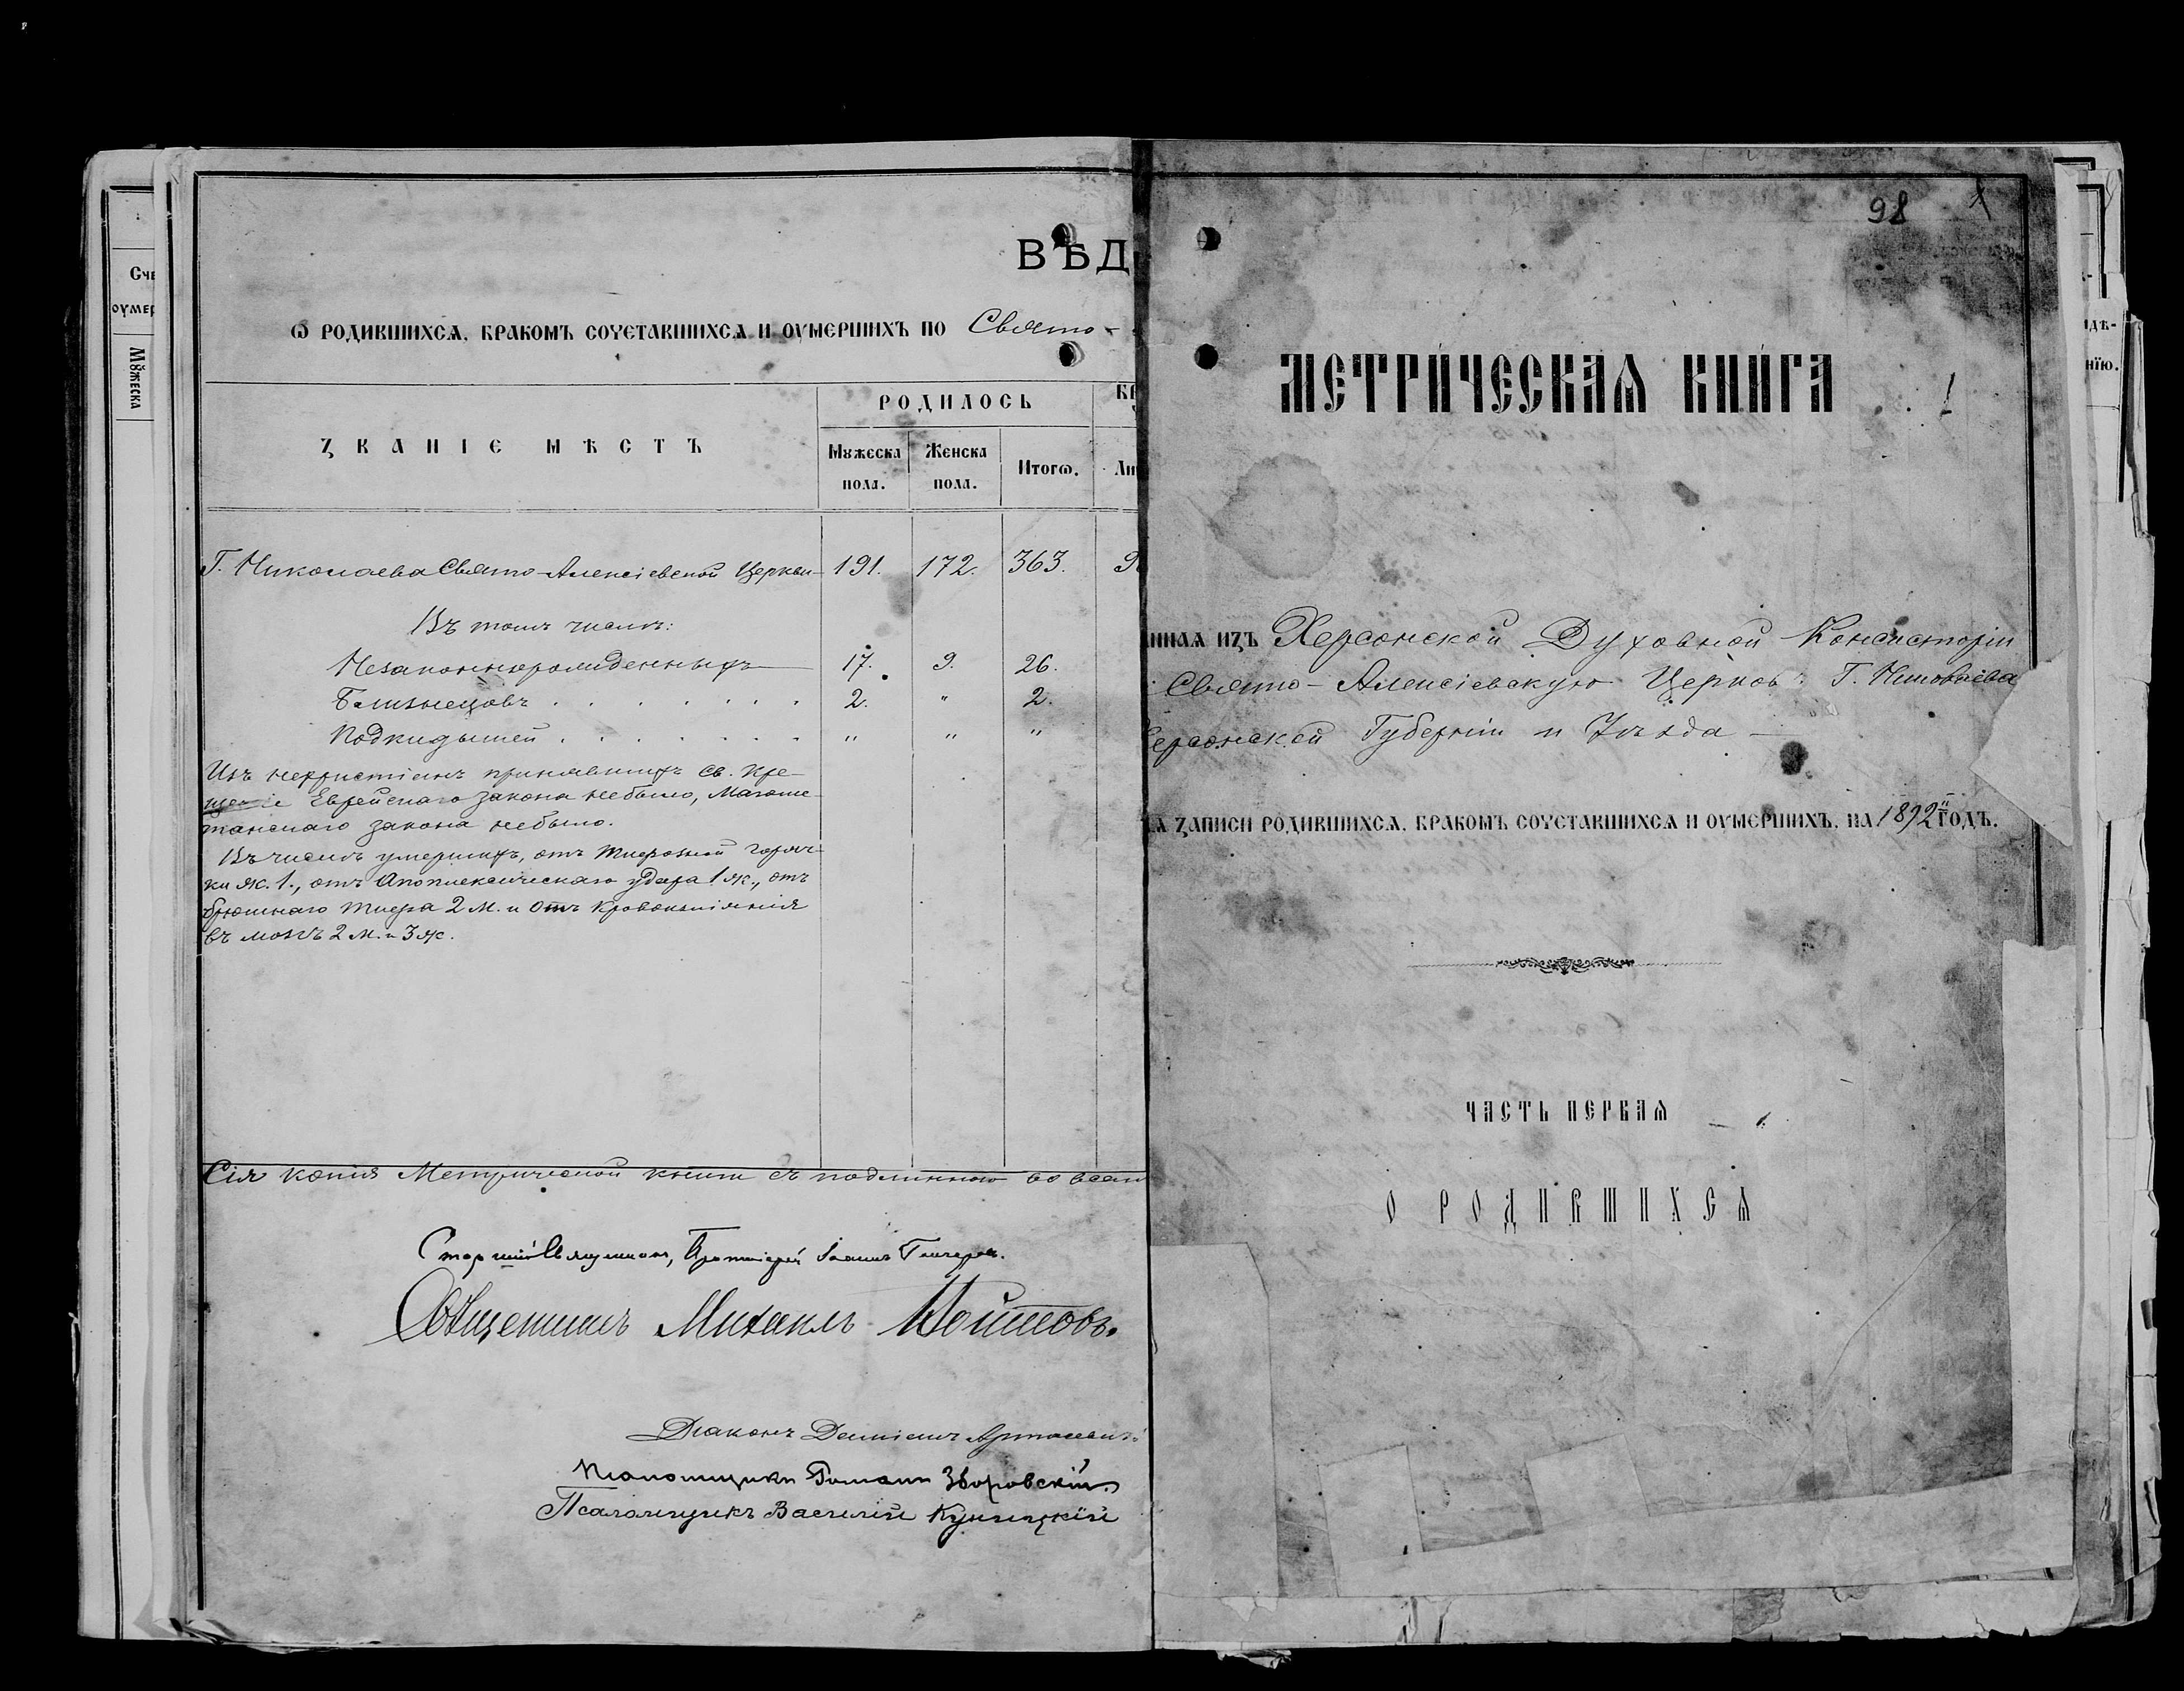 Счє
оумер
Мꙋжеска
ВѢД
Ѡ РОДИВШИХСЯ, БРАКОМЪ СОЧЕТАВШИХСЯ И ОУМЕРШИХЪ ПО Свято-
ЗВАНІЕ МѢСТЪ
РОДИЛОСЬ
Мꙋжеска пола.
Женска пола.
Итогѡ.
Г. Николаева Свято-Алексіевской Церкви 191. 172. 363.
Въ томъ числѣ:
Незаконнорожденныхъ 17. 9. 26.
Близнецовъ . . . . . . . 2. " 2.
Подкидышей . . . . . . . " " "
Изъ нехристіанъ принявшихъ Св. Кре-
щеніе Еврейскаго закона небыло, Магоме-
танскаго закона небыло.
Въ числѣ умершихъ, отъ Тифозной горяч-
ки ж. 1., отъ Апоплексическаго удара 1 ж., отъ
брюшнаго тифа 2 м. и отъ Кровоизліянія
въ мозгъ 2 м. и 3 ж.
Сія копія Метрической книги съ подлинною во всем
Старшій Священникъ, Протоіерей Іоаннъ
Священникъ Михаилъ
Діаконъ
Псаломщикъ Романъ Зборовскій
Псаломщикъ Василій Куницкій
98
МЕТРИ́ЧЕСКАЯ КНИ́ГА
нная изъ Херсонской Духовной Консисторіи
Свято-Алексіевскую Церковь Г. Николаева
Херсонской Губерніи и Уѣзда
ля записи родившихся, бракомъ сочетавшихся и оумершихъ, на 1892й годъ.
ЧАСТЬ ПЕРВАЯ
О РОДИВШИХСЯ
нїю.